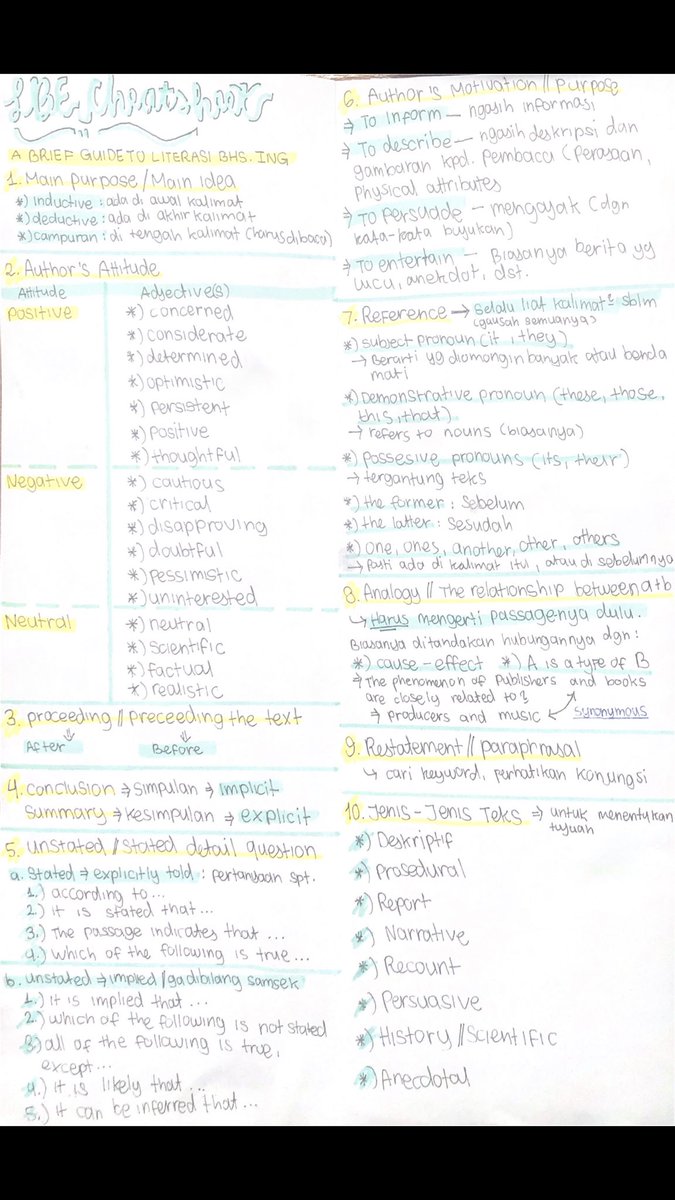 LBE Cheatsheet
A BRIEF GUIDE TO LITERASI BHS. ING
1. Main purpose / Main idea
*) inductive : ada di awal kalimat
*) deductive : ada di akhir kalimat
*) campuran : di tengah kalimat (harus dibaca)
2. Author's Attitude
Attitude Adjective(s)
Positive *) concerned
*) considerate
*) determined
*) optimistic
*) persistent
*) positive
*) thoughtful
Negative *) cautious
*) critical
*) disapproving
*) doubtful
*) pessimistic
*) uninterested
Neutral *) neutral
*) scientific
*) factual
*) realistic
3. proceeding // preceeding the text
⇓ ⇓
After Before
4. conclusion ⇒ simpulan ⇒ implicit
summary ⇒ kesimpulan ⇒ explicit
5. unstated / stated detail question
a. Stated ⇒ explicitly told : pertanyaan spt.
1.) according to ...
2.) it is stated that ...
3.) The passage indicates that ...
4.) which of the following is true ...
b. unstated ⇒ implied / gadibilang samsek
1.) it is implied that ...
2.) which of the following is not stated
3.) all of the following is true,
except ...
4.) it is likely that ...
5.) it can be inferred that ...
6. Author's Motivation // purpose
⇒ To inform — ngasih informasi
⇒ To describe — ngasih deskripsi dan
gambaran kpd. pembaca (perasaan,
physical attributes
⇒ To Persuade — mengajak (dgn
kata-kata bujukan)
⇒ To entertain — Biasanya berita yg
lucu, anekdot, dst.
7. Reference → selalu liat kalimat² sblm
(gausah semuanya)
*) subject pronoun (it, they)
→ Berarti yg diomongin banyak atau benda
mati
*) Demonstrative pronoun (these, those,
this, that)
→ refers to nouns (biasanya)
*) Possesive pronouns (its, their)
→ tergantung teks
*) the former : sebelum
*) the latter : Sesudah
*) one, ones, another, other, others
→ Pasti ada di kalimat itu, atau di sebelumnya
8. Analogy // The relationship between a+b
↳ Harus mengerti passagenya dulu.
Biasanya ditandakan hubungannya dgn :
*) cause-effect *) A is a type of B
⇒ The phenomenon of Publishers and books
are closely related to?
⇒ producers and music synonymous
9. Restatement // paraphrasal
↳ cari keyword, perhatikan konungsi
10. Jenis-Jenis Teks ⇒ untuk menentukan
tujuan
*) Deskriptif
*) Prosedural
*) Report
*) Narrative
*) Recount
*) Persuasive
*) History // Scientific
*) Anecdotal